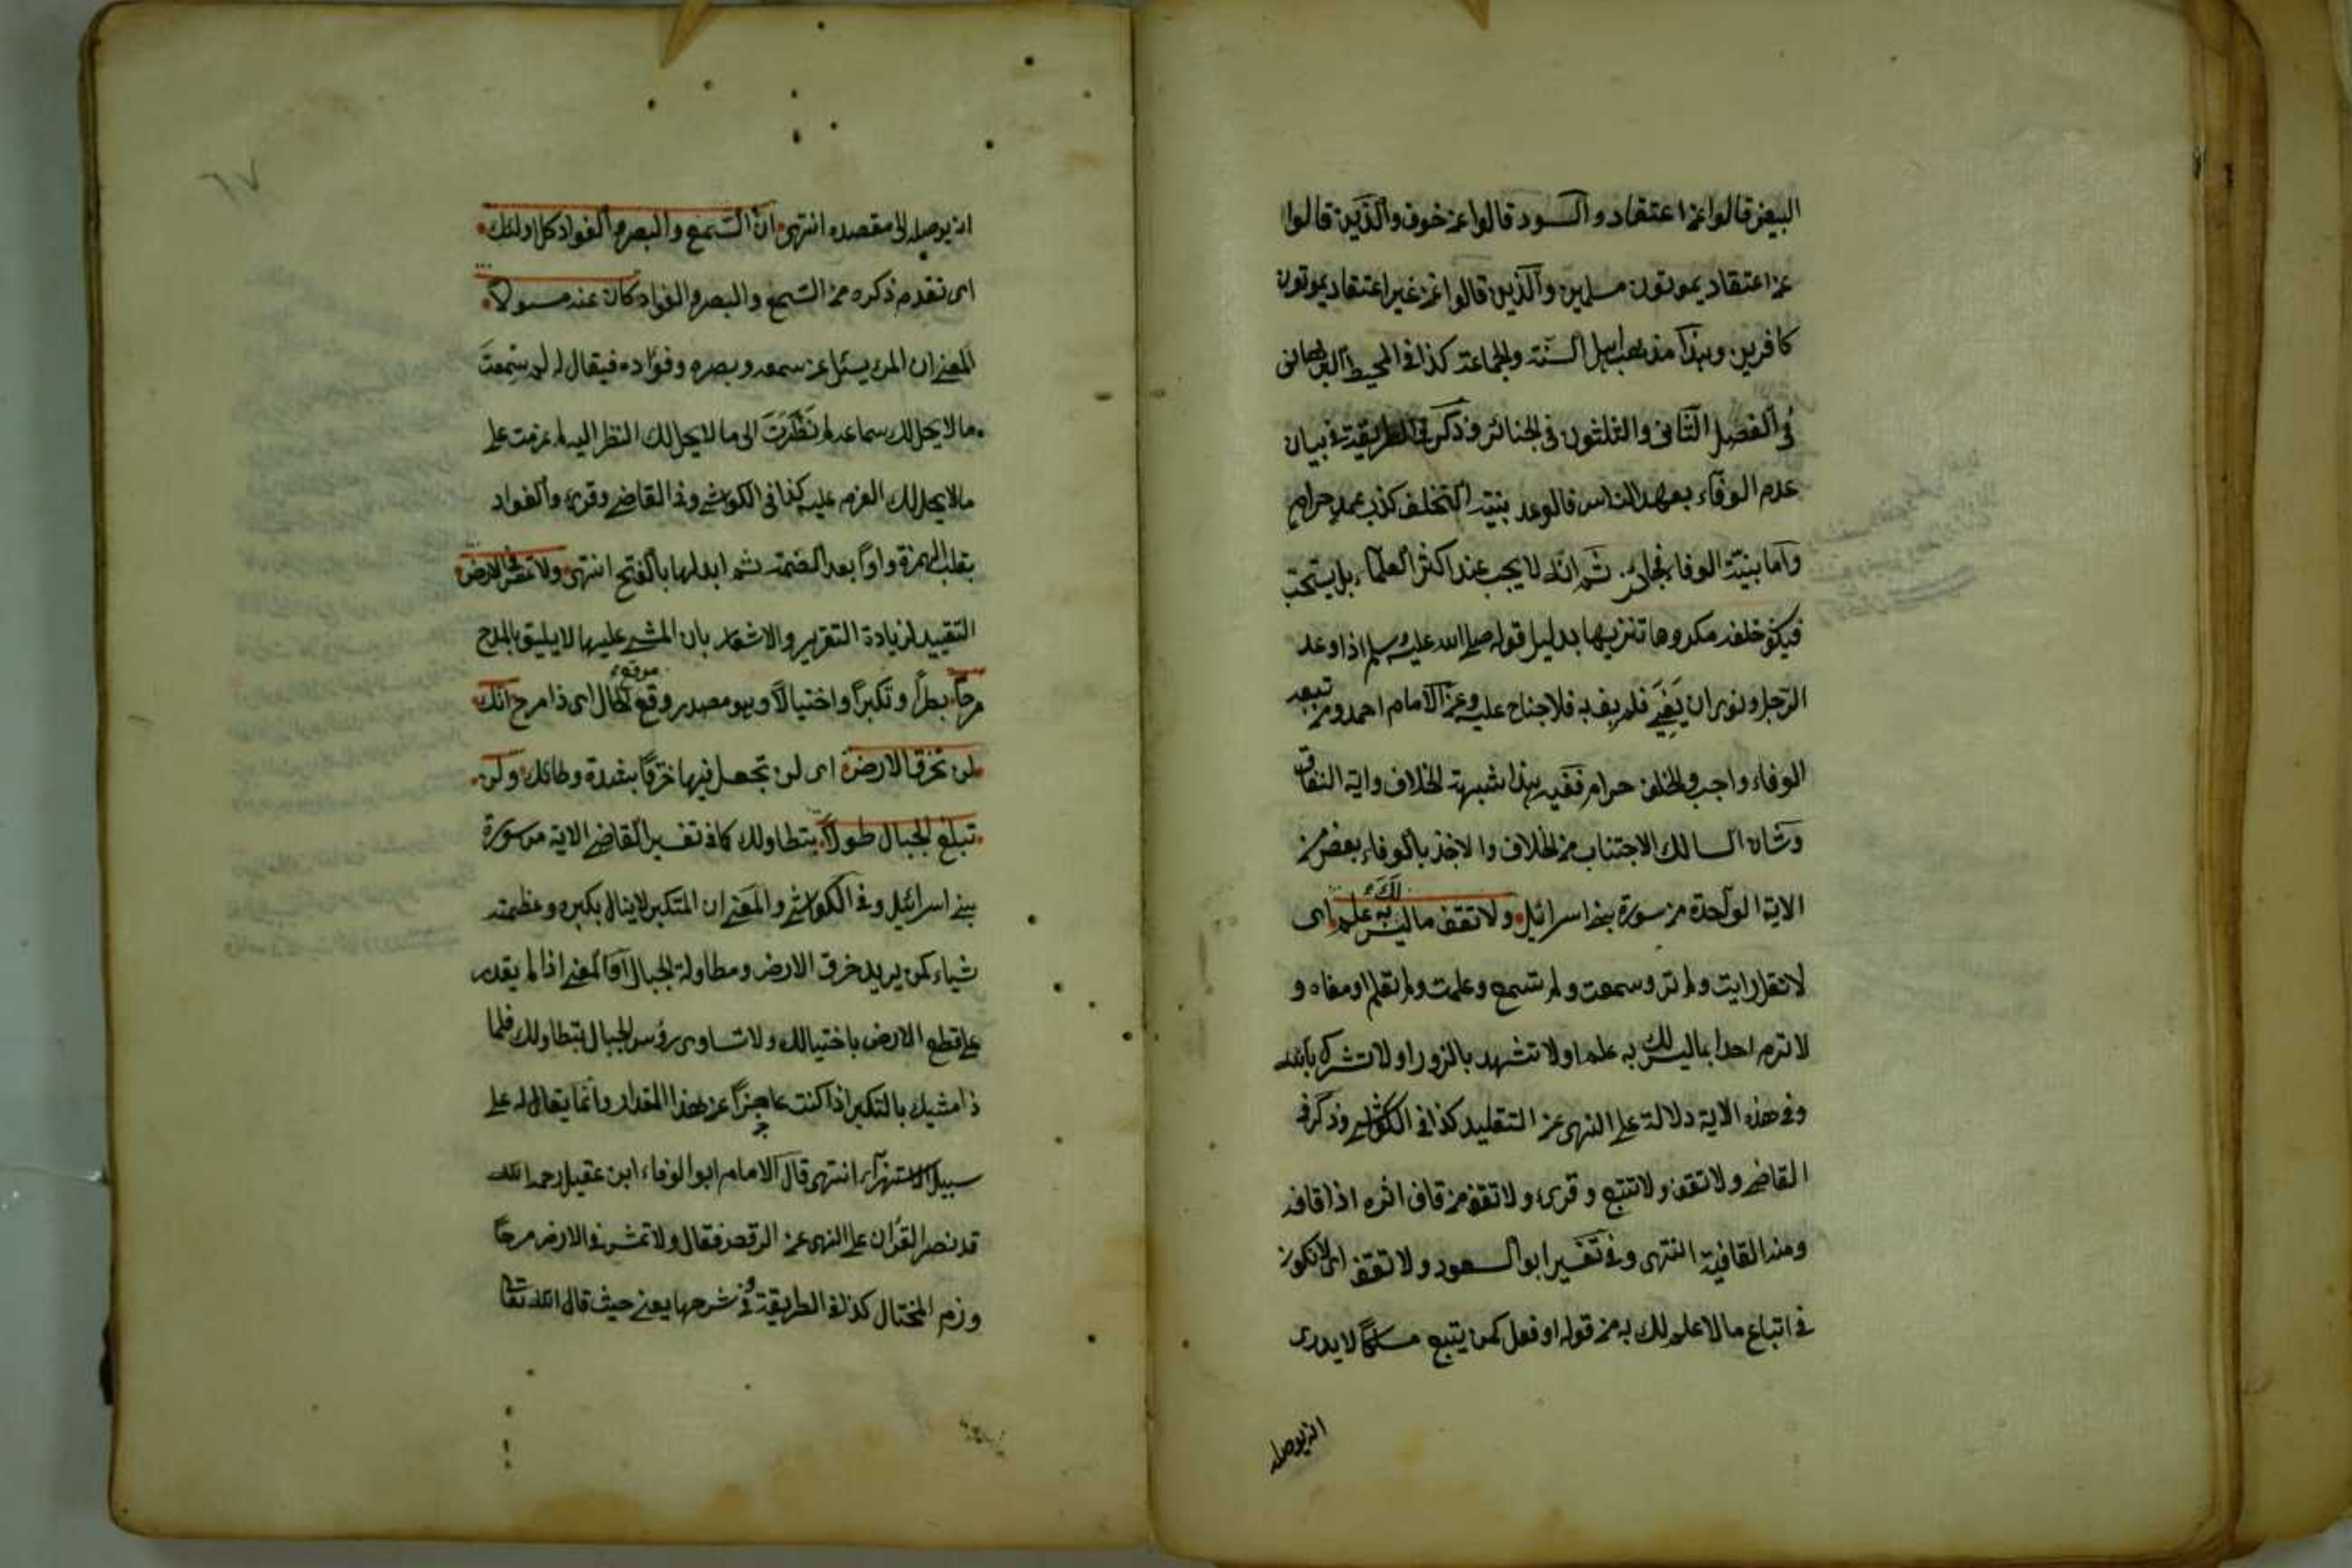 البيض قالوا عن اعتقاد والسود قالوا عن خوف والذين قالوا
عن اعتقاد يموتون مسلمين والذين قالوا عن غير اعتقاد يموتون
كافرين وهذا مذهب اهل السنة والجماعة كذا فى المحيط البرهانى
فى الفصل الثانى والثلثون فى الجنائز وذكر فى الطريقة فى بيان
عدم الوفاء بعهد الناس فالوعد بنية التخلف كذب عمد حرام
واما بنية الوفا فجائز ثم انه لا يجب عند اكثر العلماء بل يستحب
فيكون خلفه مكروها تنزيها بدليل قوله صلى الله عليه وسلم اذا وعد
الرجل ونوى ان يفى فلم يف به فلا جناح عليه وعن الامام احمد ومن تبعه
الوفاء واجب والخلف حرام ففيه بهذا شبهة الخلاف واية النفاق
وشان السالك الاجتناب من الخلاف والاخذ بالوفاء بعض من
الاية الواحدة من سورة بنى اسرائيل ولا تقف ما ليس لك به علم اى
لا تقل رايت ولم تر وسمعت ولم تسمع وعلمت ولم تعلم او معناه و
لا ترم احدا بما ليس لك به علم او لا تشهد بالزور او لا تشرك بالله
وفى هذه الاية دلالة على النهى عن التقليد كذا فى الكواشى وذكر فى
القاضى ولا تقف ولا تتبع وقرئ ولا تقف من قاف اثره اذا قافه
ومنه القافية انتهى وفى تفسير ابو السعود ولا تقف اى لا تكون
فى اتباع ما لا علم لك به من قول او فعل كمن يتبع مسلكا لا يدرى
انه يوصله
٦٧
انه يوصله الى مقصده انتهى ان السمع والبصر والفواد كل اولئك
اى تقدم ذكره من السمع والبصر والفواد كان عنه مسولا
المعنى ان المرء يسئل عن سمعه وبصره وفؤاده فيقال له لم سمعت
ما لا يحل لك سماعه لم نظرت الى ما لا يحل لك النظر اليه لم عزمت على
ما لا يحل لك العزم عليه كذا فى الكواشى وفى القاضى وقرئ والفواد
بقلب الهمزة واوا بعد الضمة ثم ابدلها بالفتح انتهى ولا تمش فى الارض
التقييد لزيادة التقرير والاشعار بان المشى عليها لا يليق بالمدح
مرحا بطرا وتكبرا واختيالا وهو مصدر وقع موقع الحال اى ذا مرح انك
لن تخرق الارض اى لن تجعل فيها خرقا بشدة وطائك ولن
تبلغ الجبال طولا بتطاولك كما فى تفسير القاضى الاية من سورة
بنى اسرائيل وفى الكواشى والمعنى ان المتكبر لا ينال بكبره وعظمته
شياء كمن يريد خرق الارض ومطاولة الجبال او المعنى اذا لم يقدر
على قطع الارض باختيالك ولا تساوى رؤس الجبال بتطاولك فلما
ذا مشيك بالتكبر اذا كنت عاجزا عن هذا المقدار وانما يقال له على
سبيل الاستهزآء انتهى قال الامام ابو الوفاء ابن عقيل رحمه الله
قد نص القرآن على النهى عن الرقص فقال ولا تمش فى الارض مرحا
وذم المختال كذا فى الطريقة وفى شرحها يعنى حيث قال الله تعالى